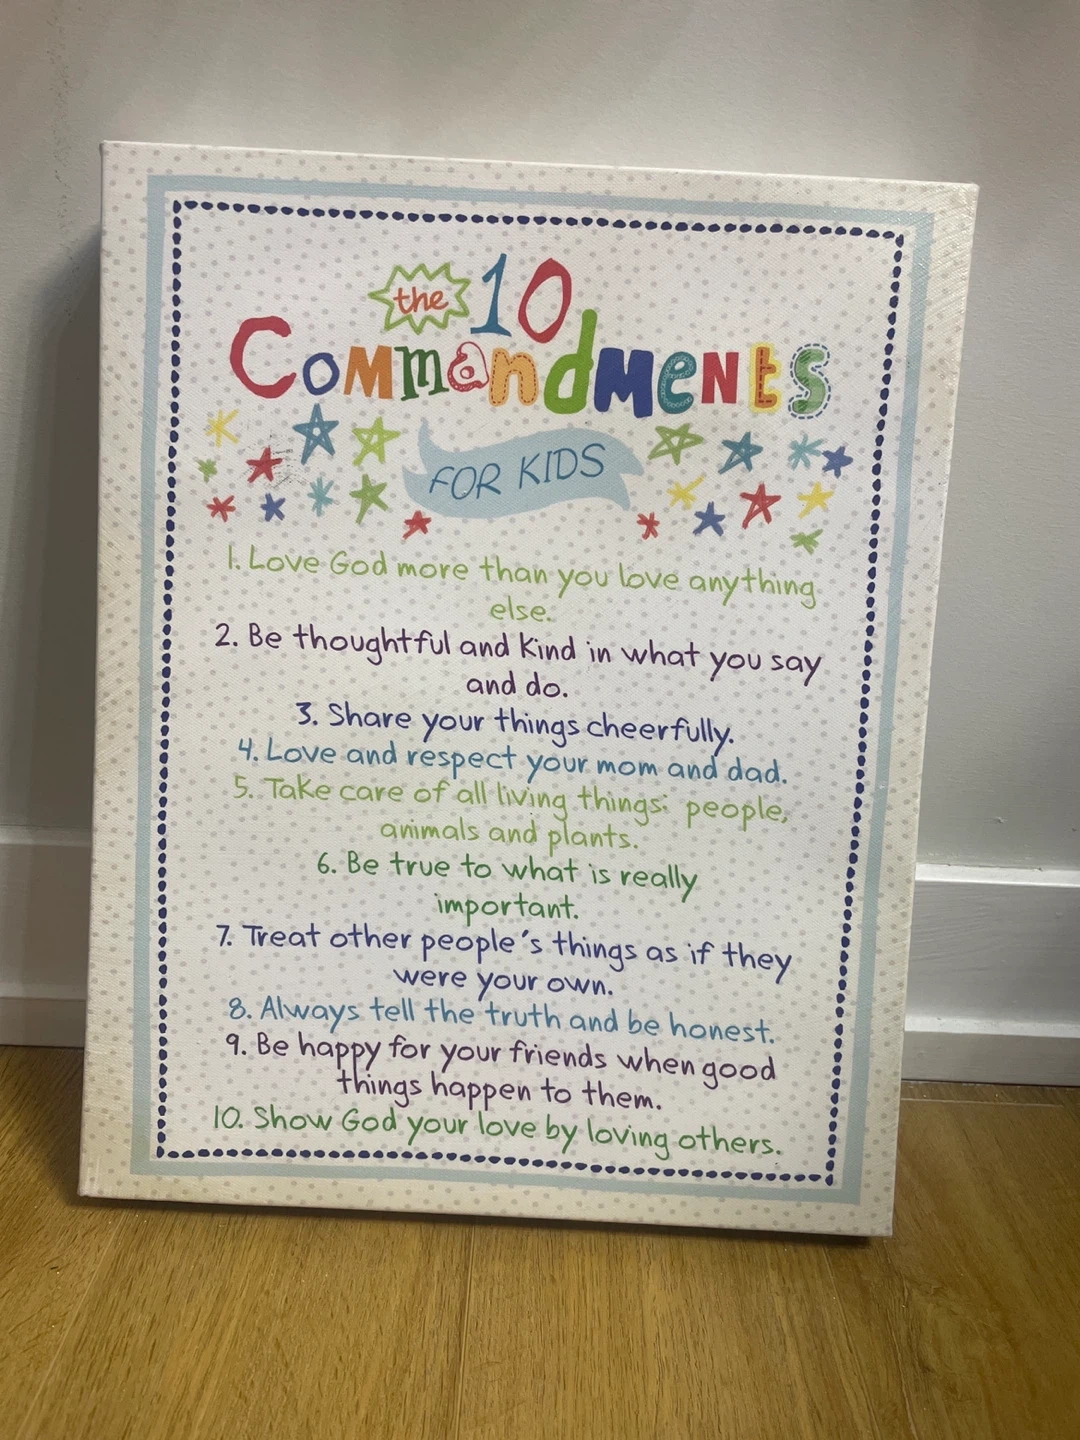 the 10
Commandments
FOR KIDS
1. Love God more than you love anything
else.
2. Be thoughtful and kind in what you say
and do.
3. Share your things cheerfully.
4. Love and respect your mom and dad.
5. Take care of all living things: people,
animals and plants.
6. Be true to what is really
important.
7. Treat other people's things as if they
were your own.
8. Always tell the truth and be honest.
9. Be happy for your friends when good
things happen to them.
10. Show God your love by loving others.